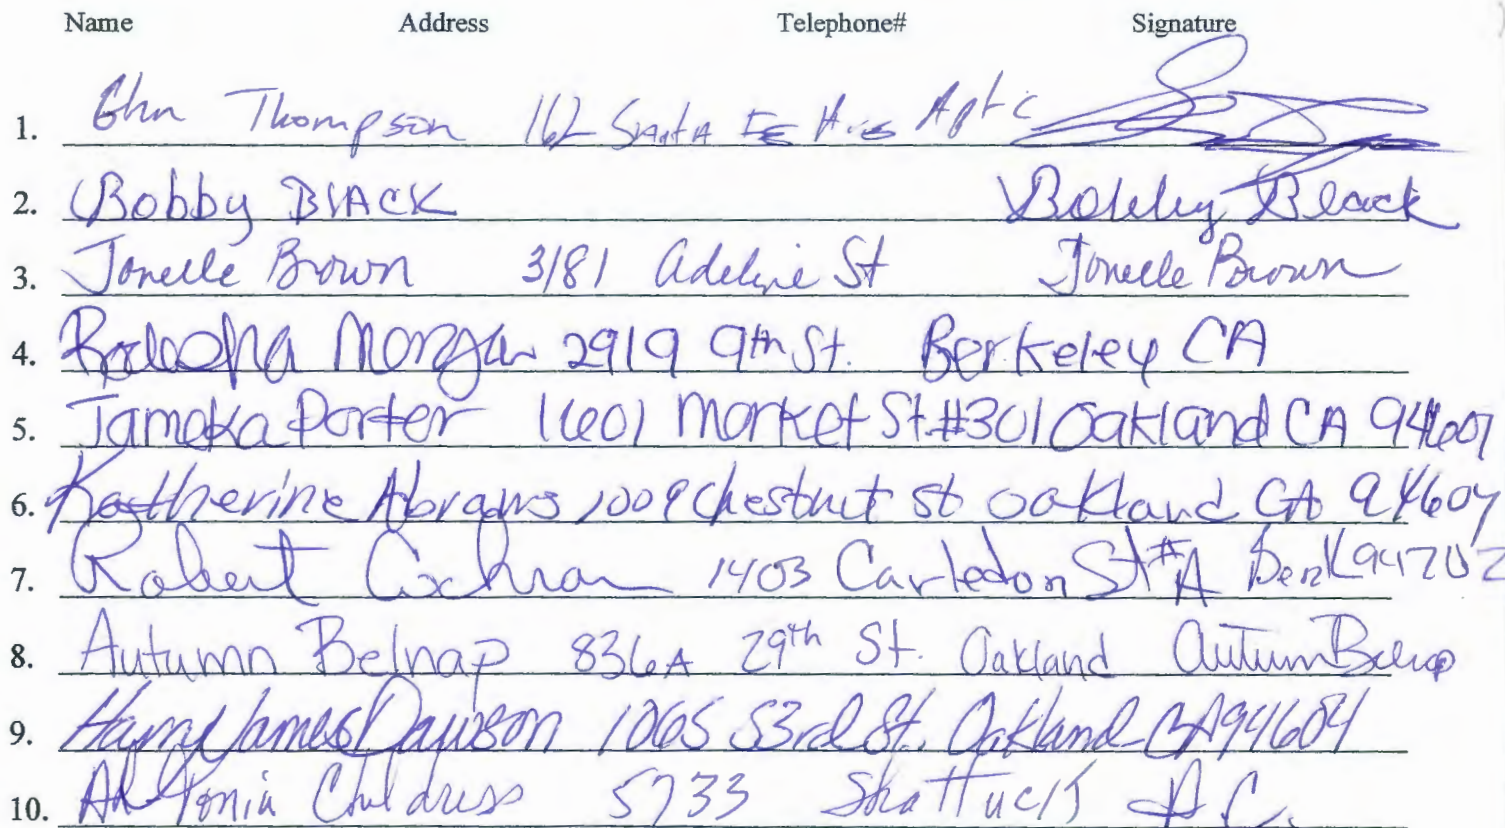 Name Address Telephone# Signature
1. Thompson 162 Santa FE Apt C
2. Bobby BLACK Bobby Black
3. Jonelle Brown 3181 Adeline St Jonelle Brown
4. Morgan 2919 9th St. Berkeley CA
5. Tameka Porter 1601 Market St. #301 Oakland CA 94607
6. Katherine Abrams 1009 Chestnut St Oakland CA 94607
7. Robert Cochran 1403 Carledon St #A Berk 94702
8. Autumn Belnap 836A 29th St. Oakland Autumn Belnap
9. James Dawson 1065 53rd St. Oakland CA 94604
10. Childress 5733 Shattuck A C.